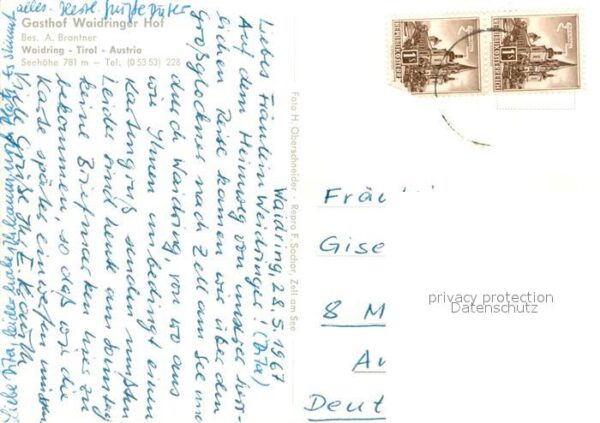 Gasthof Waidringer Hof
Bes. A. Brantner
Waidring - Tirol - Austria
Seehöhe 781 m — Tel. (0 53 53) 228
Waidring, 28.5.1967
Liebes Fräulein Weidringer! (Pita)
Auf dem Heimweg von unserer herr-
lichen Reise kamen wir über den
Großglockner nach Zell am See und
durch Waidring, von wo aus
wir Ihnen unbedingt einen
Kartengruß senden mußten.
Leider sind heute am Sonntag
keine Briefmarken hier zu
bekommen, so daß wir die
Karte später einwerfen müssen
Viele Grüße Ihr E.
Liebe leider habe
alles. Herzl. Grüße
Foto H. Oberschneider - Repro F. Sochor, Zell am See
REPUBLIK ÖSTERREICH
REPUBLIK ÖSTERREICH
Fräu
Gise
8 M
Au
Deut
privacy protection
Datenschutz